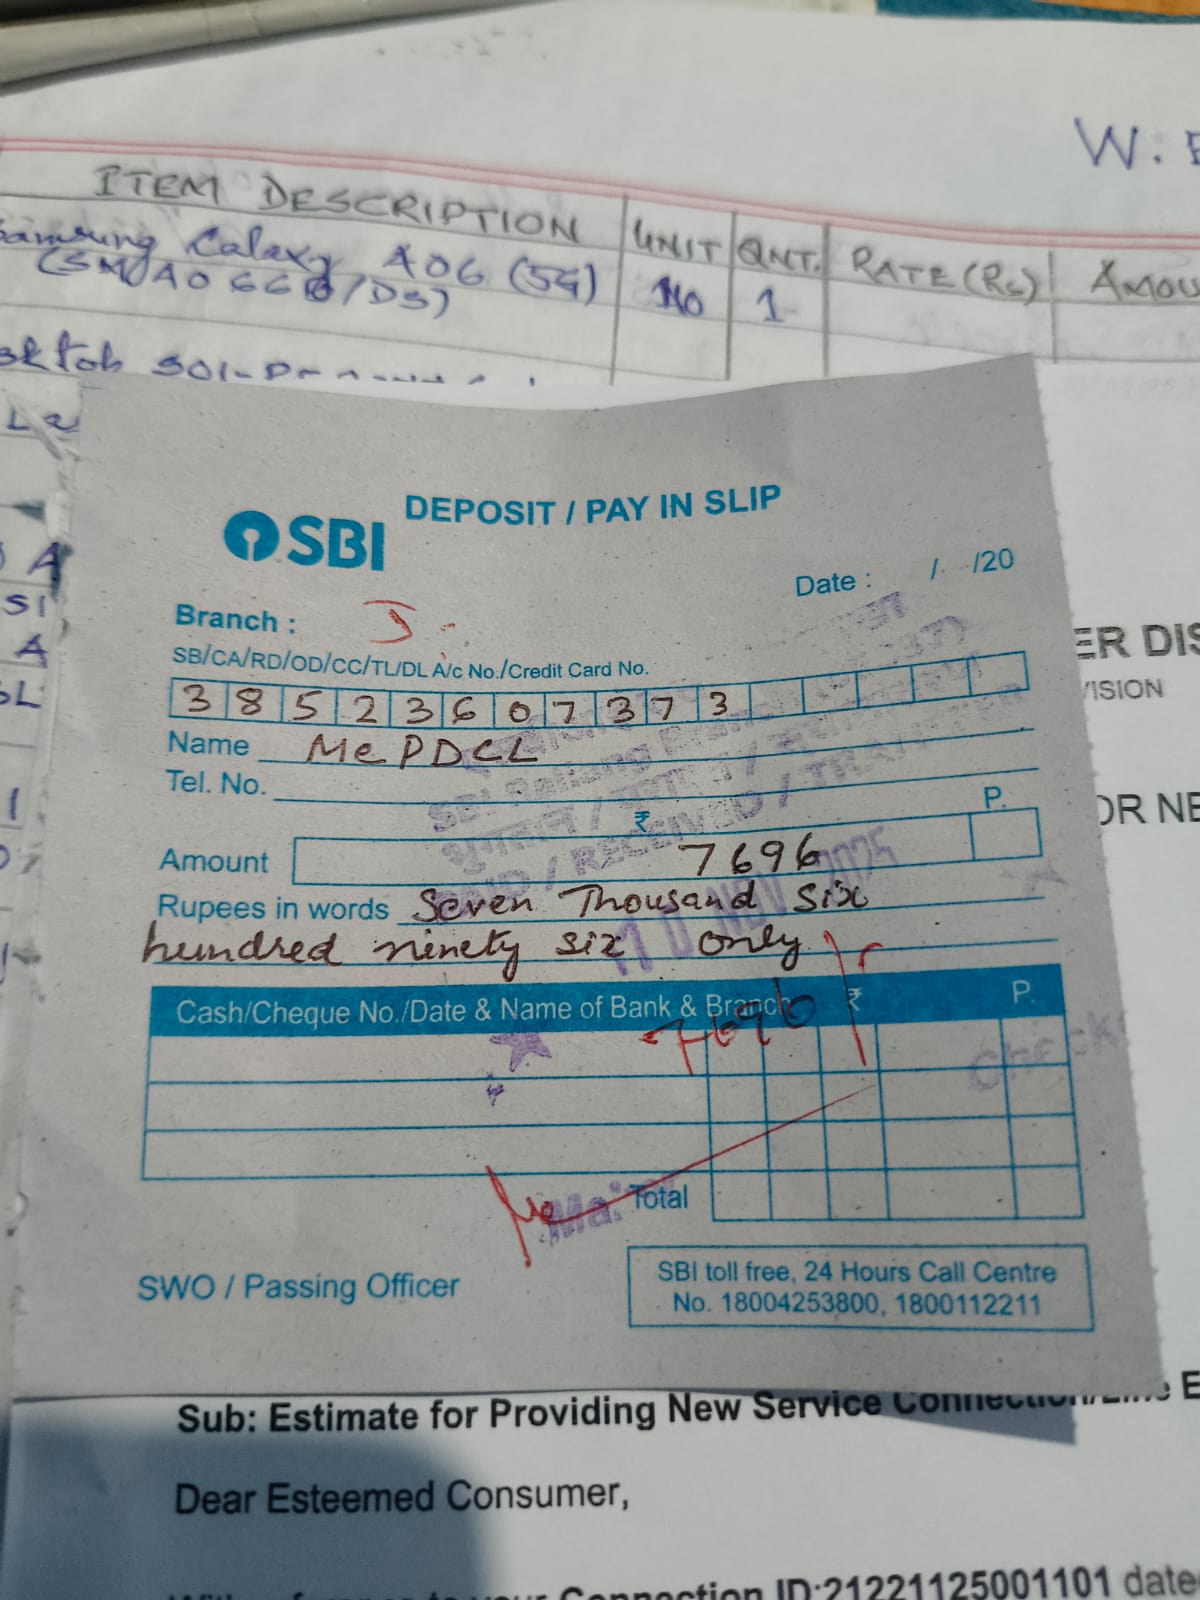 W.
ITEM DESCRIPTION UNIT QNT. RATE(Rs)
Samsung Galaxy A06 (5G) No 1
DEPOSIT / PAY IN SLIP
SBI
Date : / /20
Branch : J
SB/CA/RD/OD/CC/TL/DL A/c No./Credit Card No.
38523607373
Name MePDCL
Tel. No.
₹ P.
Amount 7696
Rupees in words Seven Thousand Six
hundred ninety six only
10 NOV 2025
Cash/Cheque No./Date & Name of Bank & Branch ₹ P.
7696
Total
SWO / Passing Officer
SBI toll free, 24 Hours Call Centre
No. 18004253800, 1800112211
ER DIS
VISION
OR NE
Sub: Estimate for Providing New Service Connection/Line E
Dear Esteemed Consumer,
Connection ID:21221125001101 date